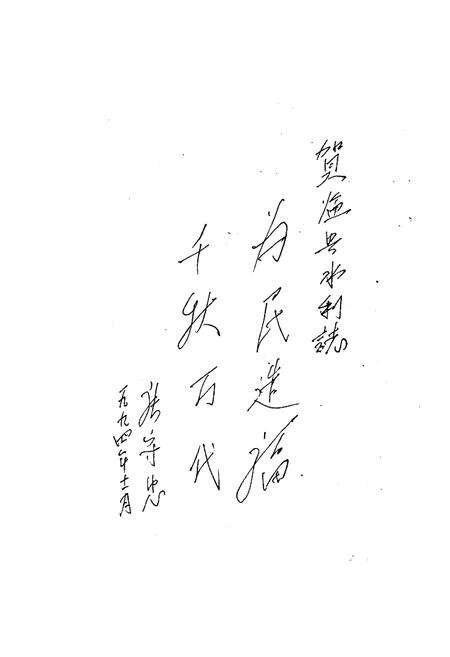 贺盐县水利誌
为民造福
千秋万代
张守忠
一九九四年十二月